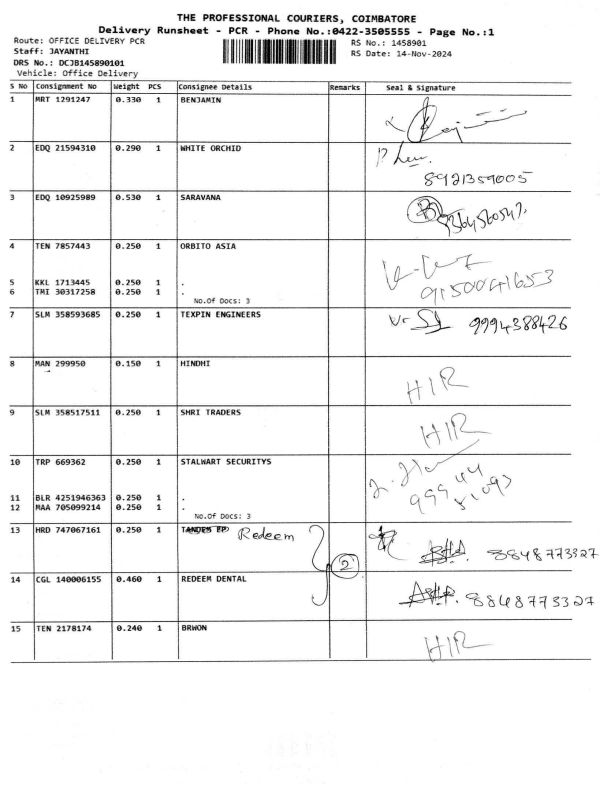 THE PROFESSIONAL COURIERS, COIMBATORE
Delivery Runsheet - PCR - Phone No.:0422-3505555 - Page No.:1
Route: OFFICE DELIVERY PCR RS No.: 1458901
Staff: JAYANTHI RS Date: 14-Nov-2024
DRS No.: DCJB145890101
Vehicle: Office Delivery
S No Consignment No Weight PCS Consignee Details Remarks Seal & Signature
1 MRT 1291247 0.330 1 BENJAMIN
2 EDQ 21594310 0.290 1 WHITE ORCHID
8921359005
3 EDQ 10925989 0.530 1 SARAVANA
4 TEN 7857443 0.250 1 ORBITO ASIA
5 KKL 1713445 0.250 1 .
9150041653
6 TMI 30317258 0.250 1 .
No.Of Docs: 3
7 SLM 358593685 0.250 1 TEXPIN ENGINEERS 9994388426
8 MAN 299950 0.150 1 HINDHI
HIR
9 SLM 358517511 0.250 1 SHRI TRADERS
HIR
10 TRP 669362 0.250 1 STALWART SECURITYS
99944
11 BLR 4251946363 0.250 1 .
81093
12 MAA 705099214 0.250 1 .
No.Of Docs: 3
13 HRD 747067161 0.250 1 Redeem
2 8848773327
14 CGL 140006155 0.460 1 REDEEM DENTAL
8848773327
15 TEN 2178174 0.240 1 BRWON
HIR